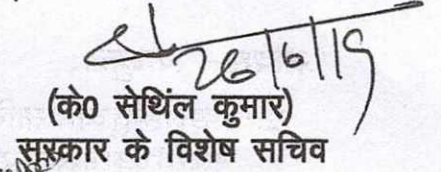 26/6/19
(के0 सेथिंल कुमार)
सरकार के विशेष सचिव